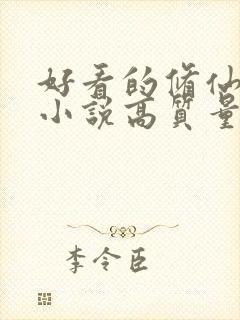 好看的修仙
小説高質量
李令臣